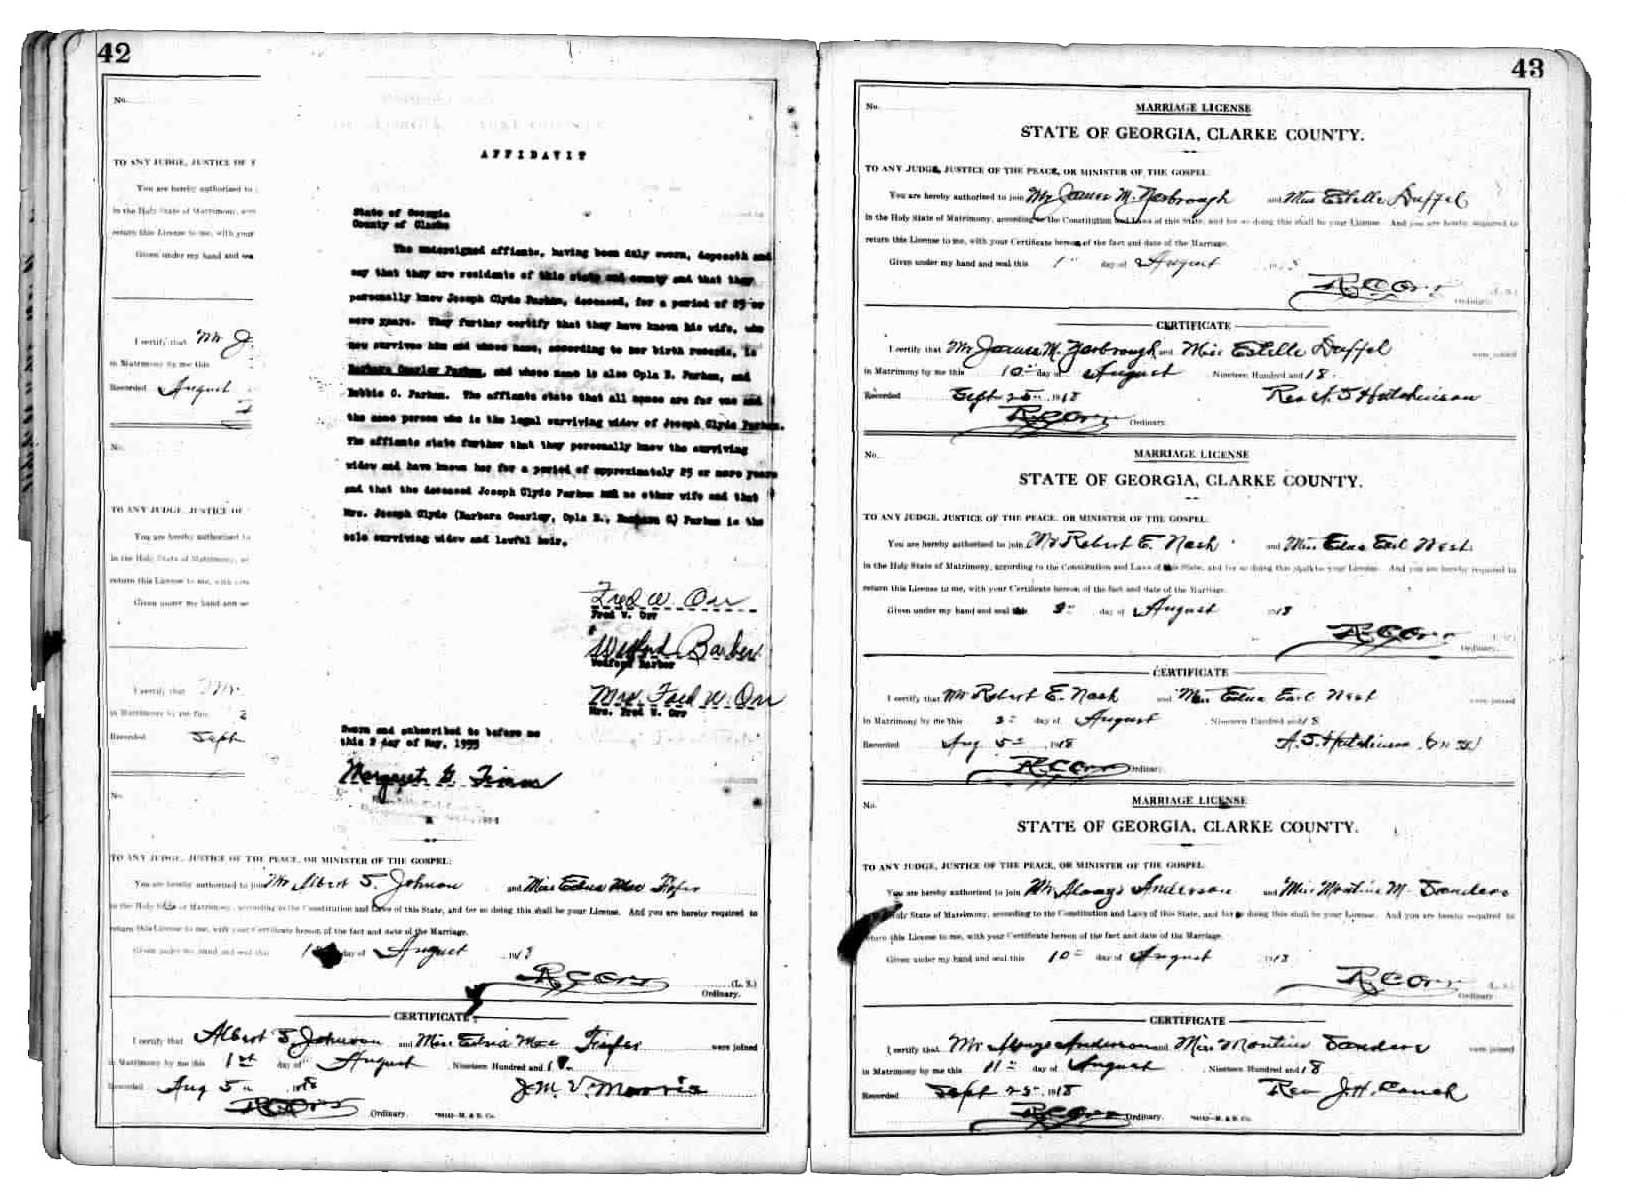 42
No.
TO ANY JUDGE, JUSTICE OF
You are hereby authorized to
in the Holy State of Matrimony,
return this License to me, with your
Given under my hand and sea
I certify that Mr J
in Matrimony by me this
Recorded August
No.
TO ANY JUDGE, JUSTICE OF
You are hereby authorized to
in the Holy State of Matrimony,
return this License to me, with
Given under my hand and se
I certify that Mr.
in Matrimony by me this 2
Recorded Sept
No.
AFFIDAVIT
State of Georgia
County of Clarke
The undersigned affiants, having been duly sworn, deposeth and
say that they are residents of this state and county and that they
personally knew Joseph Clyde Parham, deceased, for a period of 25 or
more years. They further certify that they have known his wife, who
now survives him and whose name, according to her birth records, is
Barbara Parham, and whose name is also Opla B. Parham, and
Bobbie O. Parham. The affiants state that all names are for one and
the same person who is the legal surviving widow of Joseph Clyde Parham.
The affiants state further that they personally know the surviving
widow and have known her for a period of approximately 25 or more years
and that the deceased Joseph Clyde Parham had no other wife and that
Mrs. Joseph Clyde (Barbara Opla B., Parham is the
sole surviving widow and lawful heir.
Fred W. Orr
Fred W. Orr
Welford Barber
Welford Barber
Mrs. Fred W. Orr
Mrs. Fred W. Orr
Sworn and subscribed to before me
this 2 day of May, 1955
Margaret G.
TO ANY JUDGE, JUSTICE OF THE PEACE, OR MINISTER OF THE GOSPEL:
You are hereby authorized to join Mr Albert S. Johnson and Miss Edna Mae
in the Holy State of Matrimony, according to the Constitution and Laws of this State, and for so doing this shall be your License. And you are hereby required to
return this License to me, with your Certificate hereon of the fact and date of the Marriage.
Given under my hand and seal this 1 day of August 1918
R C Orr (L. S.)
Ordinary.
CERTIFICATE
I certify that Albert S. Johnson and Miss Edna Mae were joined
in Matrimony by me this 1st day of August, Nineteen Hundred and 18
Recorded Aug 5th, 1918 J.M. V. Morris
R C Orr Ordinary.
43
No. MARRIAGE LICENSE
STATE OF GEORGIA, CLARKE COUNTY.
TO ANY JUDGE, JUSTICE OF THE PEACE, OR MINISTER OF THE GOSPEL:
You are hereby authorized to join Mr James M. Yarbrough and Miss Estelle Duffel
in the Holy State of Matrimony, according to the Constitution and Laws of this State, and for so doing this shall be your License. And you are hereby required to
return this License to me, with your Certificate hereon of the fact and date of the Marriage.
Given under my hand and seal this 1" day of August 1918
R C Orr (L. S.)
Ordinary.
CERTIFICATE
I certify that Mr James M. Yarbrough and Miss Estelle Duffel were joined
in Matrimony by me this 10th day of August, Nineteen Hundred and 18.
Recorded Sept 25th, 1918 Rev A. S Hutchinson
R C Orr Ordinary.
No. MARRIAGE LICENSE
STATE OF GEORGIA, CLARKE COUNTY.
TO ANY JUDGE, JUSTICE OF THE PEACE, OR MINISTER OF THE GOSPEL:
You are hereby authorized to join Mr Robert E. Nash and Miss Edna Earl West
in the Holy State of Matrimony, according to the Constitution and Laws of this State, and for so doing this shall be your License. And you are hereby required to
return this License to me, with your Certificate hereon of the fact and date of the Marriage.
Given under my hand and seal this 3" day of August 1918
R C Orr (L. S.)
Ordinary.
CERTIFICATE
I certify that Mr Robert E. Nash and Miss Edna Earl West were joined
in Matrimony by me this 3" day of August, Nineteen Hundred and 18
Recorded Aug 5th, 1918 A. S. Hutchinson
R C Orr Ordinary.
No. MARRIAGE LICENSE
STATE OF GEORGIA, CLARKE COUNTY.
TO ANY JUDGE, JUSTICE OF THE PEACE, OR MINISTER OF THE GOSPEL:
You are hereby authorized to join Mr Anderson and Miss Montine M. Sanders
in the Holy State of Matrimony, according to the Constitution and Laws of this State, and for so doing this shall be your License. And you are hereby required to
return this License to me, with your Certificate hereon of the fact and date of the Marriage.
Given under my hand and seal this 10" day of August 1918
R C Orr (L. S.)
Ordinary
CERTIFICATE
I certify that Mr Anderson and Miss Montine Sanders were joined
in Matrimony by me this 11" day of August, Nineteen Hundred and 18
Recorded Sept 25", 1918 Rev J. H. Couch
R C Orr Ordinary.